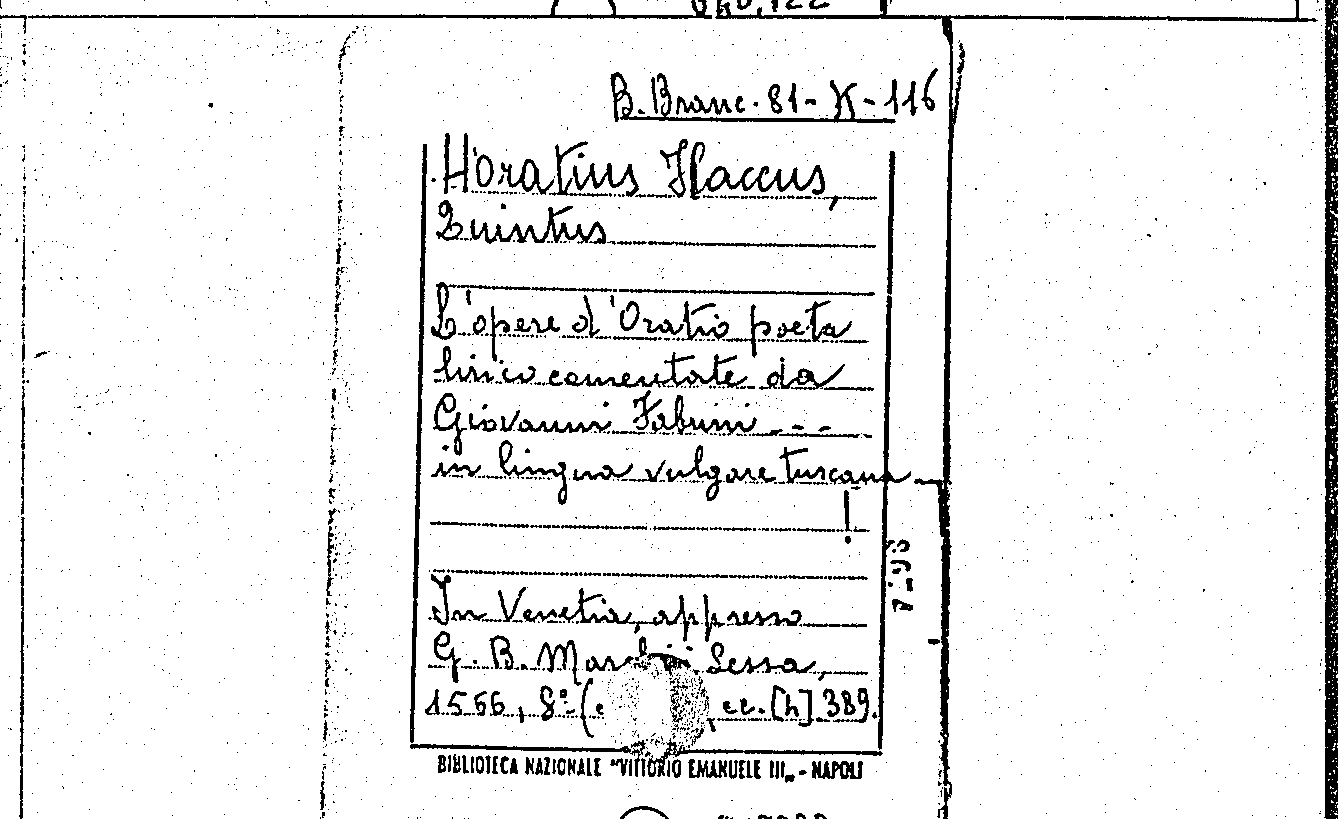 B. Branc. 81-K-116
Horatius Flaccus,
Quintus
L'opere d'Oratio poeta
lirico comentate da
Giovanni Fabrini ---
in lingua vulgare tuscana
!
In Venetia, appresso
G. B. Marchiò Sessa,
1566, 8º (c , cc. [h] 389.
BIBLIOTECA NAZIONALE "VITTORIO EMANUELE III„ - NAPOLI